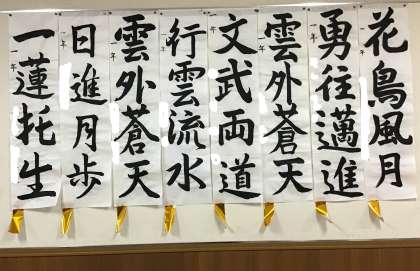 花鳥風月
勇往邁進
一年
雲外蒼天
一年
文武両道
一年
行雲流水
一年
雲外蒼天
一年
日進月歩
一年
一蓮托生
一年